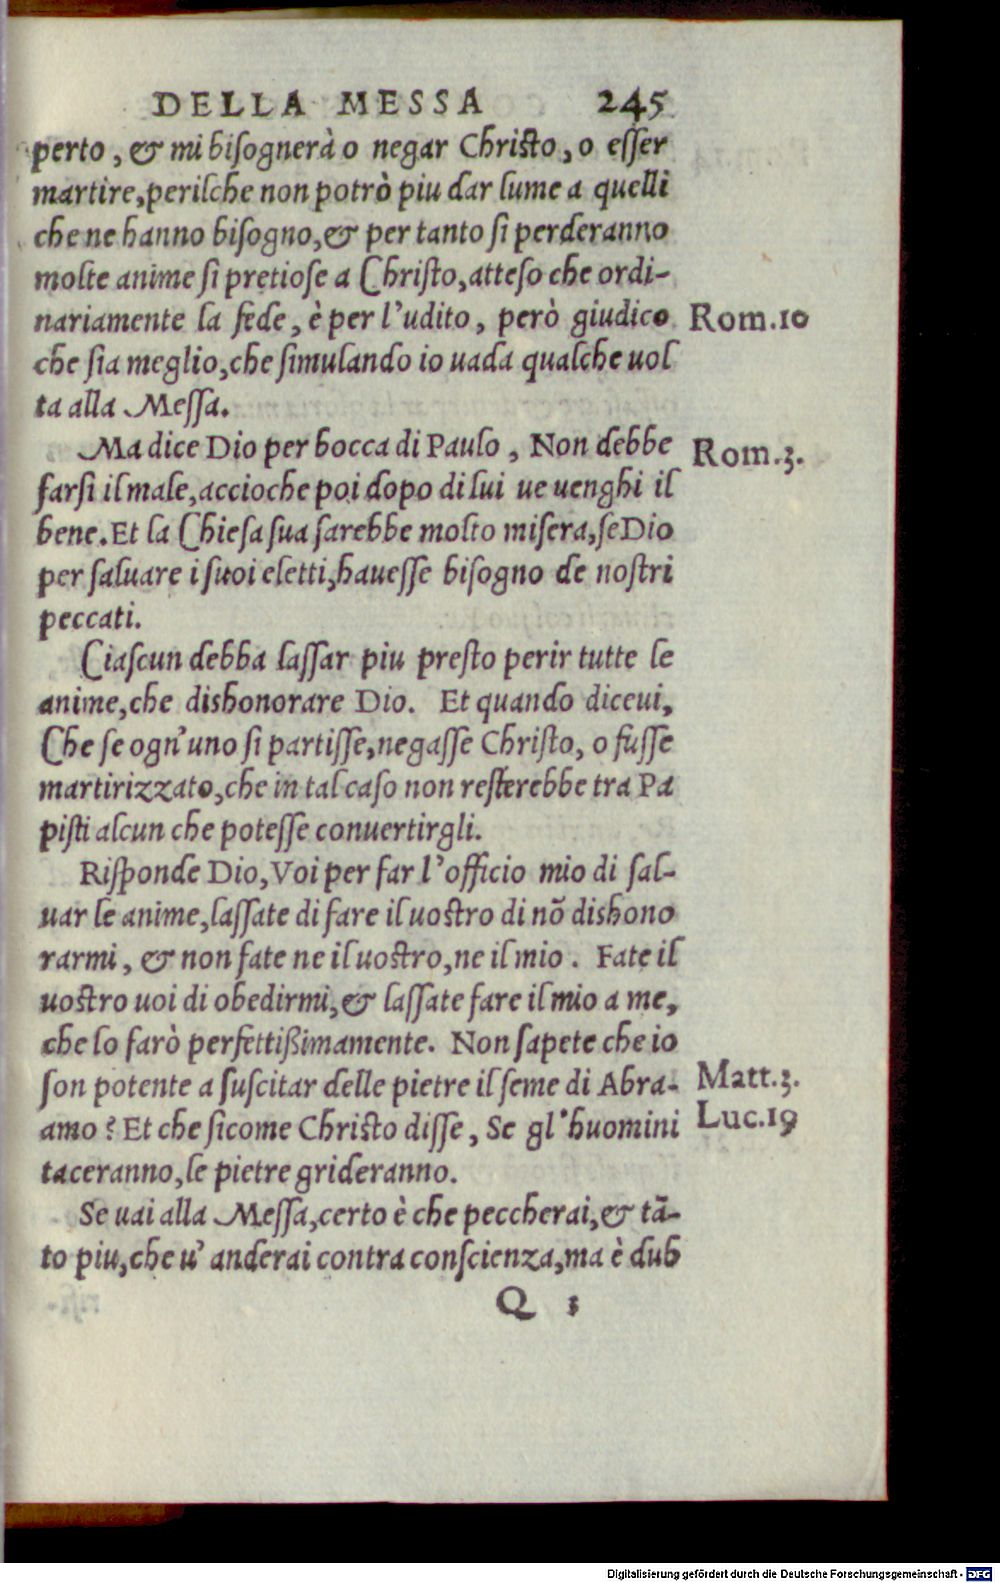 DELLA MESSA 245
perto, & mi biſognerà o negar Chriſto, o eſſer
martire, perilche non potrò piu dar lume a quelli
che ne hanno biſogno, & per tanto ſi perderanno
molte anime ſi pretioſe a Chriſto, atteſo che ordi-
nariamente la fede, è per l'udito, però giudico Rom.10
che ſia meglio, che ſimulando io uada qualche uol
ta alla Meſſa.
Ma dice Dio per bocca di Paulo, Non debbe Rom.3.
farſi il male, accioche poi dopo di lui ue uenghi il
bene. Et la Chieſa ſua ſarebbe molto miſera, ſe Dio
per ſaluare i ſuoi eletti, haueſſe biſogno de noſtri
peccati.
Ciaſcun debba laſſar piu preſto perir tutte le
anime, che dishonorare Dio. Et quando diceui,
Che ſe ogn'uno ſi partiſſe, negaſſe Chriſto, o fuſſe
martirizzato, che in tal caſo non reſterebbe tra Pa
piſti alcun che poteſſe conuertirgli.
Riſponde Dio, Voi per far l'officio mio di ſal-
uar le anime, laſſate di fare il uoſtro di nō dishono
rarmi, & non fate ne il uoſtro, ne il mio. Fate il
uoſtro uoi di obedirmi, & laſſate fare il mio a me,
che lo farò perfettißimamente. Non ſapete che io
ſon potente a ſuſcitar delle pietre il ſeme di Abra- Matt.3.
amo? Et che ſicome Chriſto diſſe, Se gl'huomini Luc.19
taceranno, le pietre grideranno.
Se uai alla Meſſa, certo è che peccherai, & tā-
to piu, che u' anderai contra conſcienza, ma è dub
Q 3
Digitalisierung gefördert durch die Deutsche Forschungsgemeinschaft - DFG